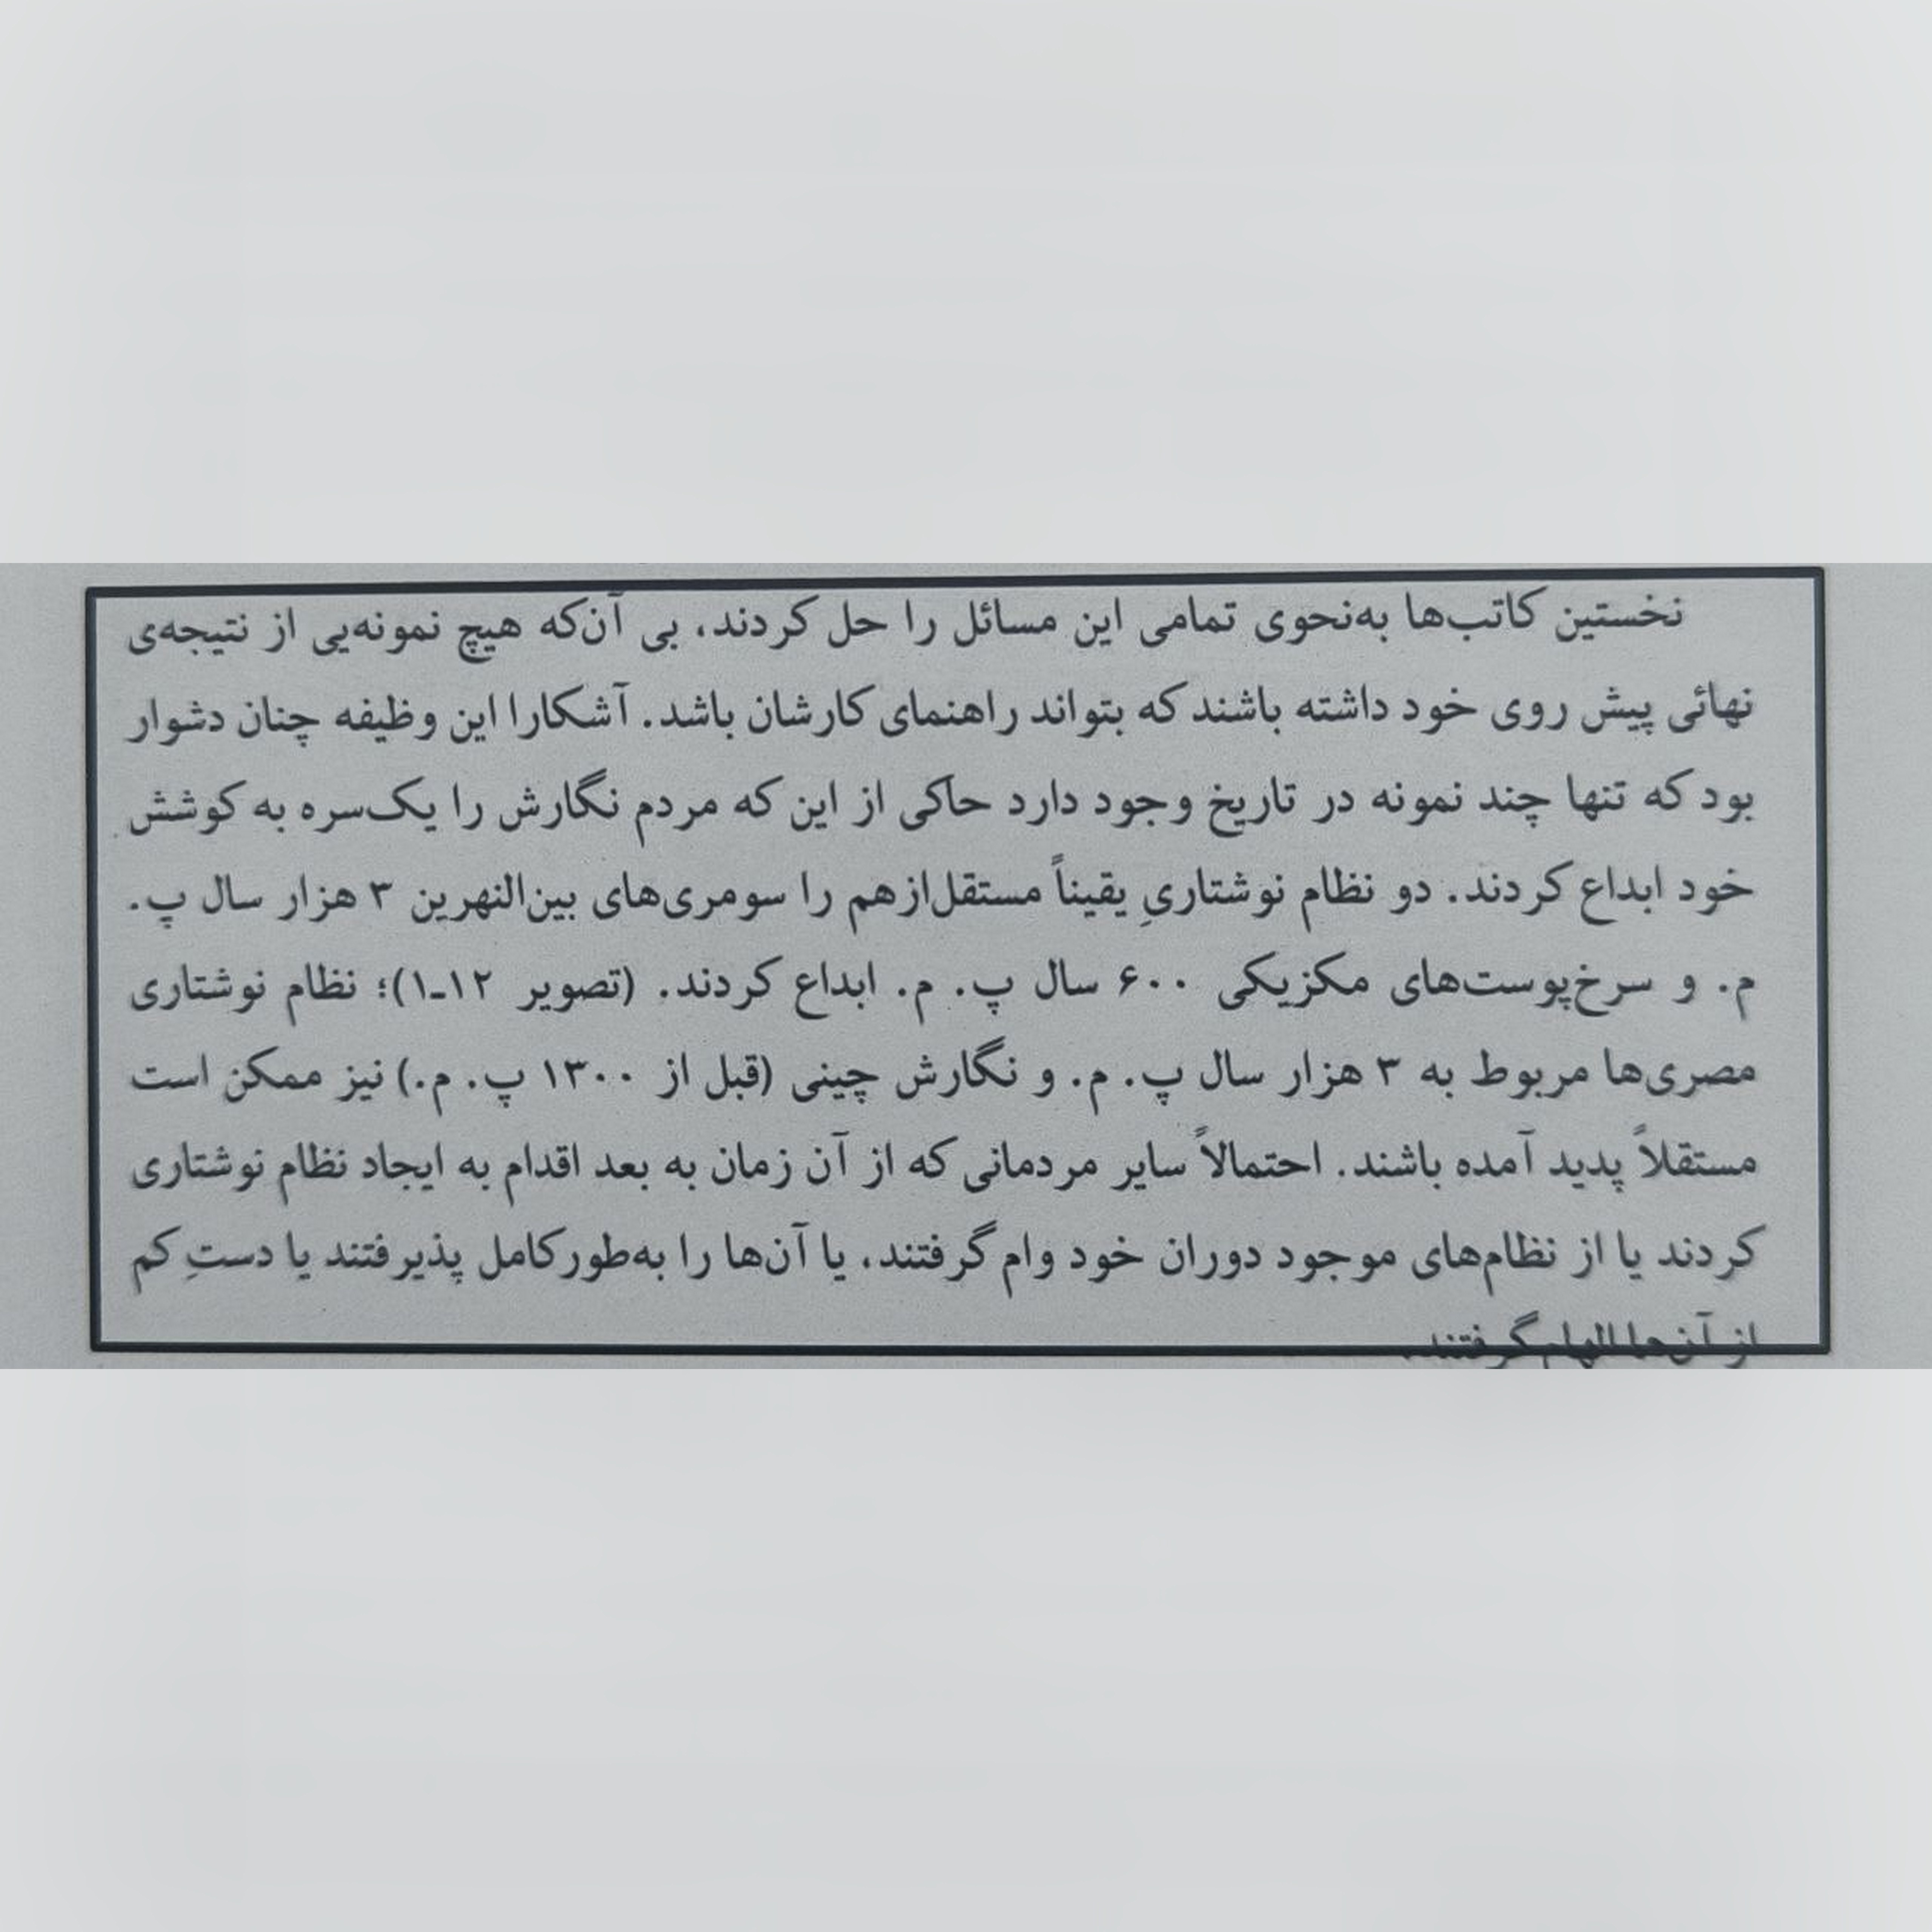 نخستین کاتب‌ها به‌نحوی تمامی این مسائل را حل کردند، بی آن‌که هیچ نمونه‌یی از نتیجه‌ی
نهائی پیش روی خود داشته باشند که بتواند راهنمای کارشان باشد. آشکارا این وظیفه چنان دشوار
بود که تنها چند نمونه در تاریخ وجود دارد حاکی از این که مردم نگارش را یک‌سره به کوشش
خود ابداع کردند. دو نظام نوشتاریِ یقیناً مستقل‌ازهم را سومری‌های بین‌النهرین ۳ هزار سال پ.
م. و سرخ‌پوست‌های مکزیکی ۶۰۰ سال پ. م. ابداع کردند. (تصویر ۱۲ـ۱)؛ نظام نوشتاری
مصری‌ها مربوط به ۳ هزار سال پ. م. و نگارش چینی (قبل از ۱۳۰۰ پ. م.) نیز ممکن است
مستقلاً پدید آمده باشند. احتمالاً سایر مردمانی که از آن زمان به بعد اقدام به ایجاد نظام نوشتاری
کردند یا از نظام‌های موجود دوران خود وام گرفتند، یا آن‌ها را به‌طورکامل پذیرفتند یا دستِ کم
از آن‌ها الهام گرفتند.